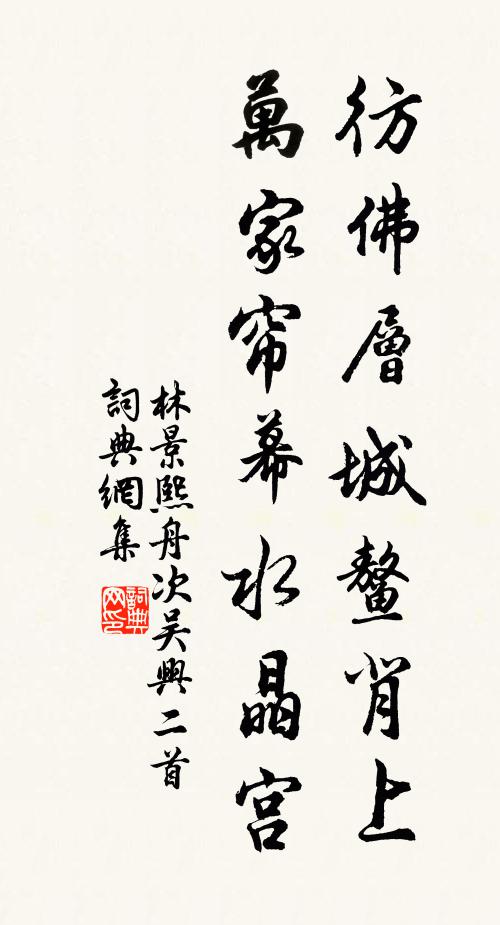 彷佛層城鳌背上
萬家帘幕水晶宫
林景熙舟次吴興二首
詞典網集
詞典网印